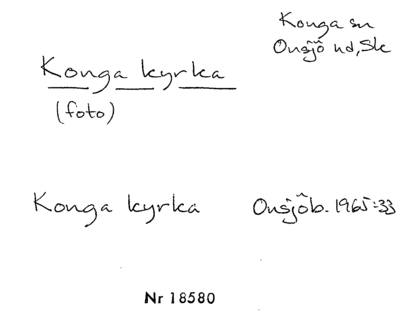 Konga sn
Onsjö hd, Sk
Konga kyrka
(foto)
Konga kyrka Onsjöb. 1965:33
Nr 18580